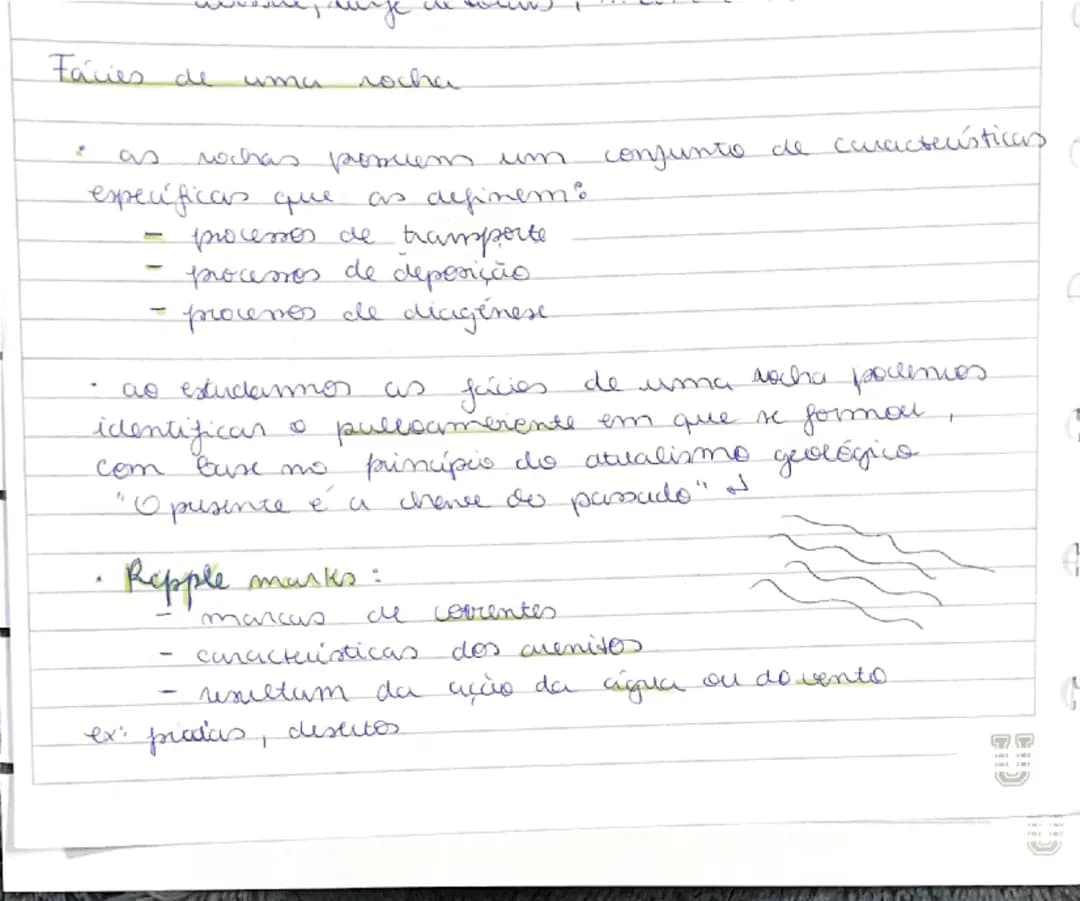 Fácies de uma rocha
• as rochas possuem um conjunto de características
específicas que as definem:
- processos de transporte
- processos de deposição
- processos de diagénese
• ao estudarmos as fácies de uma rocha podemos
identificar o paleoambiente em que se formou,
com base no princípio do atualismo geológico
"O presente é a chave do passado" ↲
• Ripple marks:
- marcas de correntes
- características dos arenitos
- resultam da ação da água ou do vento
ex: praias, desertos
U
U